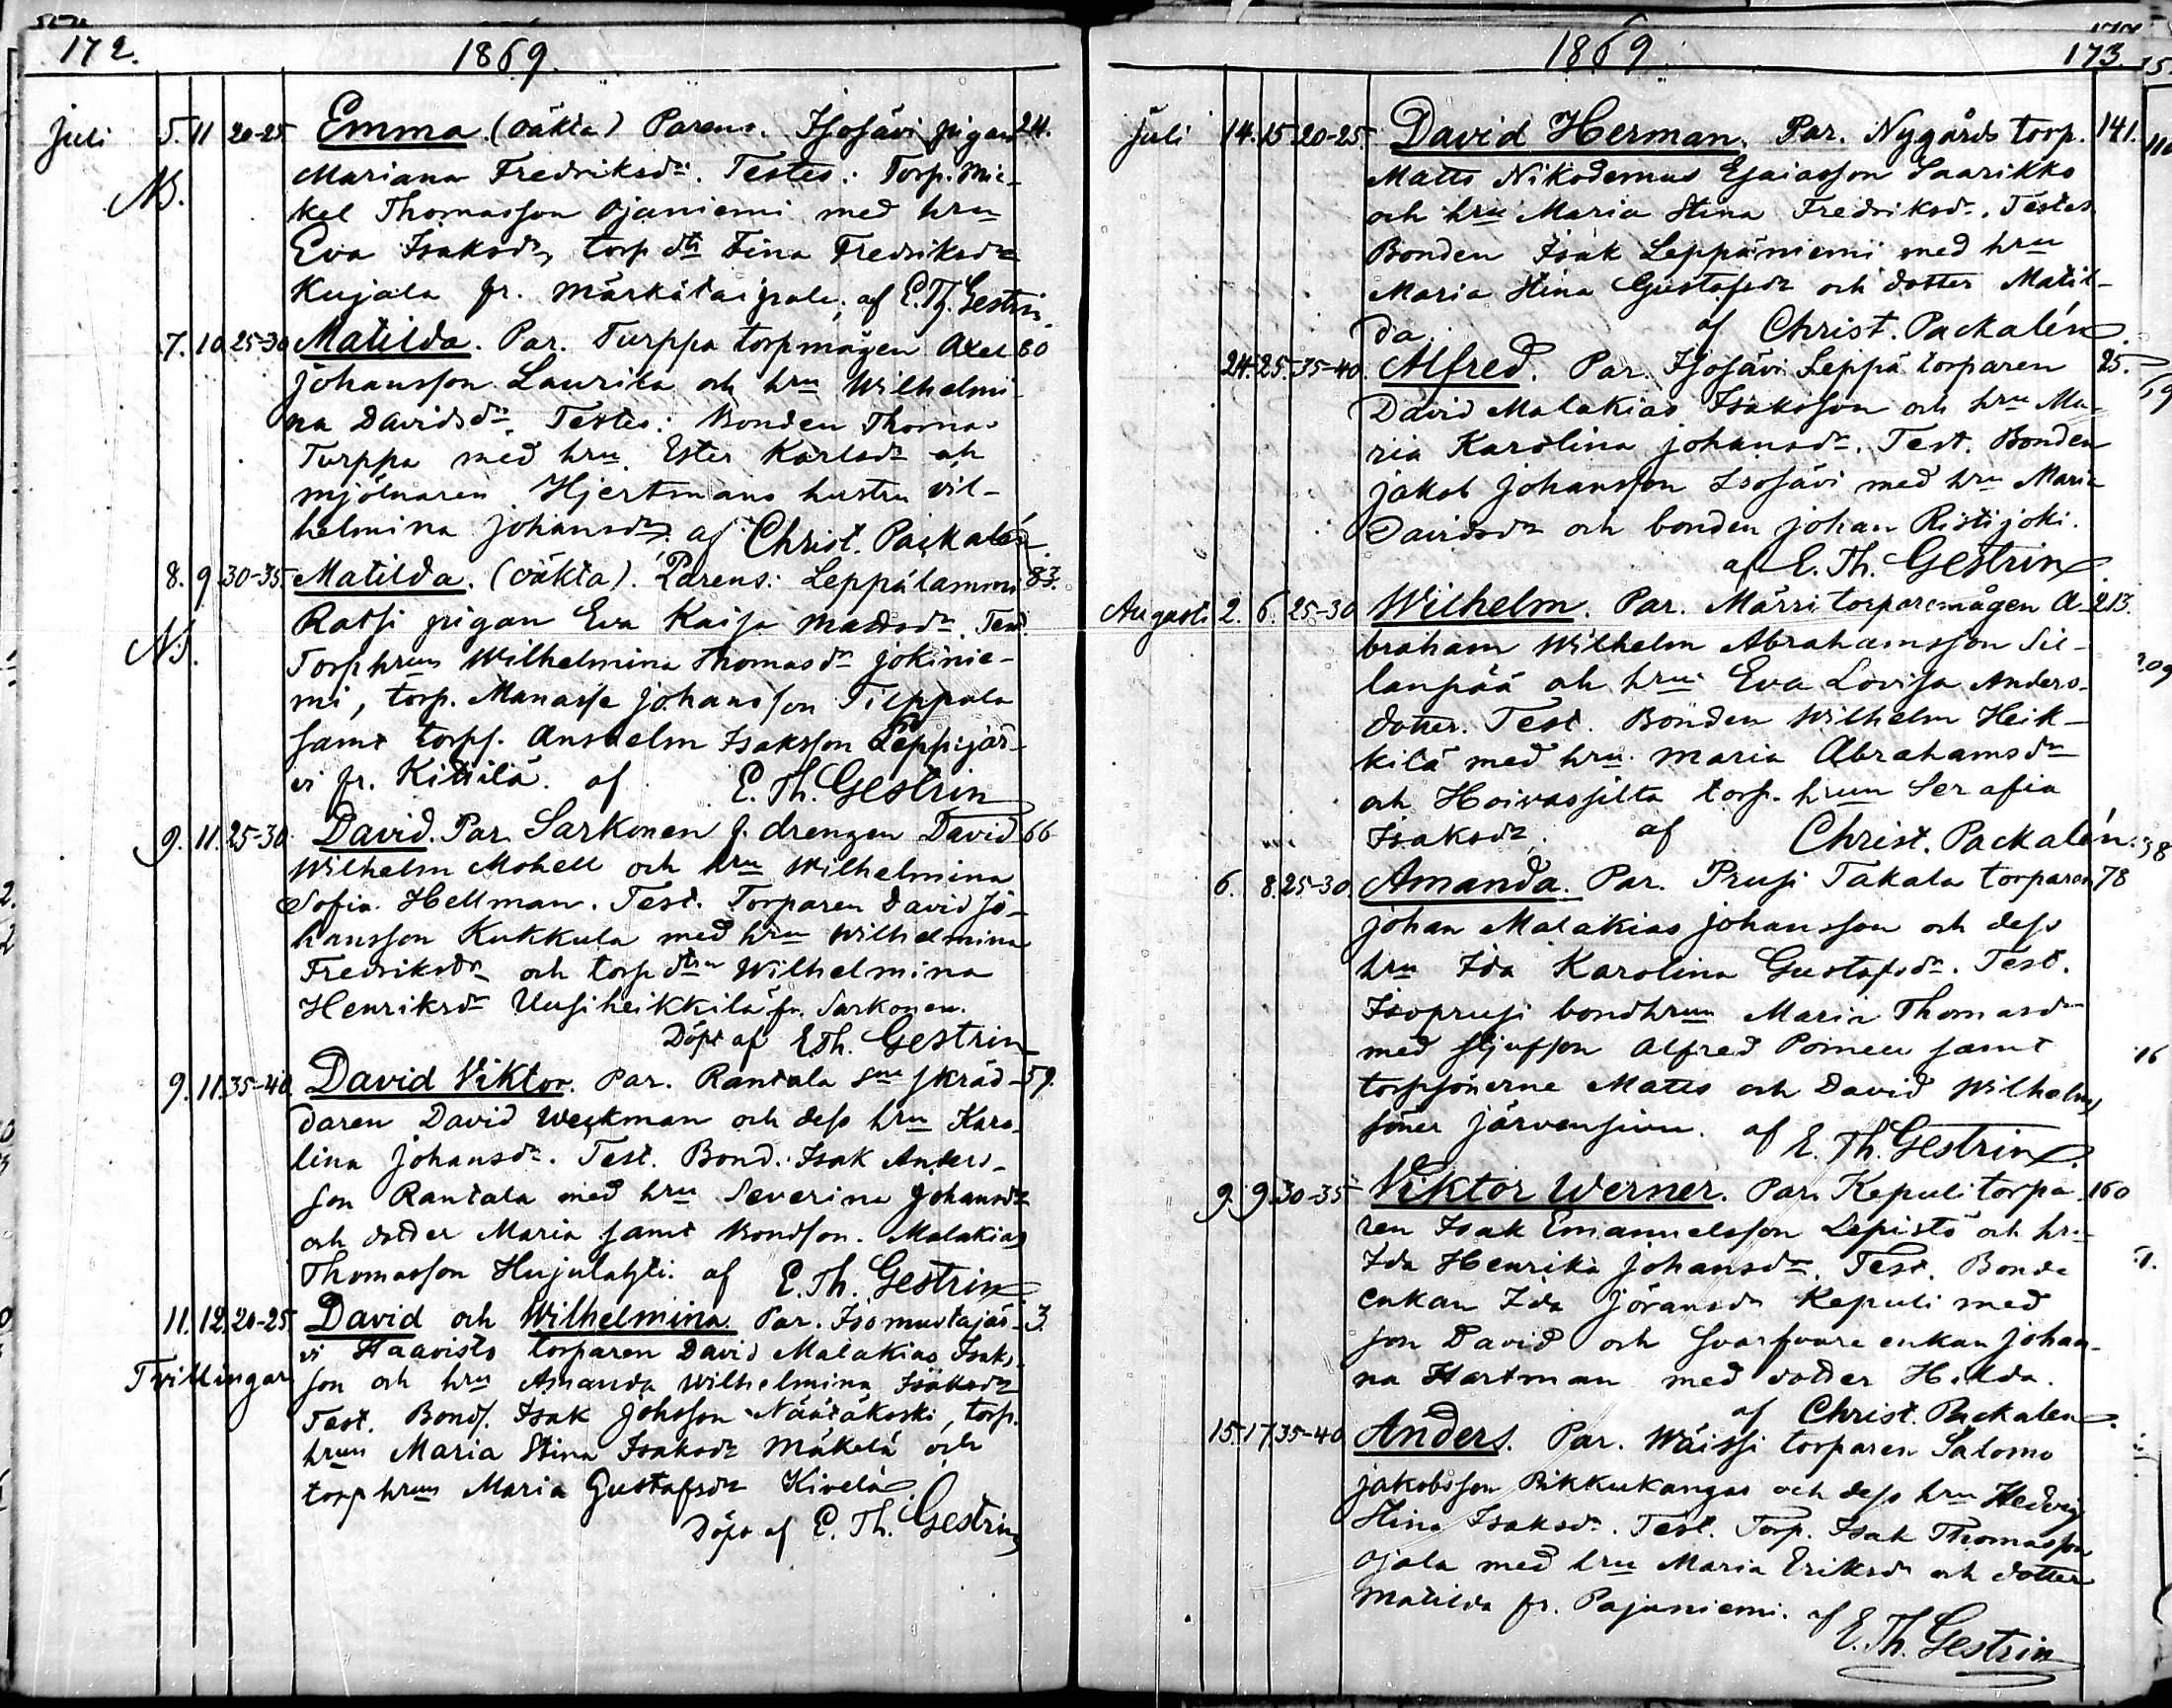 172. 1869.
Juli 5. 11 20-25 Emma (oäkta) Parens. Isosävi pigan 24.
Mariana Fredriksdr. Testes: Torp. Mic-
NB.
kel Thomasson Ojaniemi med hru
Eva Isaksdr, torp dtr Fina Fredriksdr
Kujala fr. af E. Th. Gestrin.
7. 10 25-30 Matilda. Par. Turppa torpmågen Axel 80
Johansson Laurila och hru Wilhelmi-
na Davidsdr. Testes: Bonden Thomas
Turppa med hru Ester Karlsdr och
mjölnaren Hjertmans hustru Vil-
helmina Johansdr. af Christ. Packalén.
8. 9 30-35. Matilda. (oäkta). Parens: Leppälammi 83.
Ratsi pigan Eva Kaisa Mattsdr. Test.
NB.
Torphrun Wilhelmina Thomasdr Jokinie-
mi, torp. Manasse Johansson Tieppala
samt torps. Anshelm Isaksson Leppijär-
vi fr. Kittilä. af E. Th. Gestrin
9. 11. 25-30 David. Par. Sarkonen f. drengen David 66
Wilhelm Mohell och hru Wilhelmina
Sofia Hellman. Test. Torparen David Jo-
hansson Kukkula med hru Wilhelmina
Fredriksdr och torp dtrn Wilhelmina
Henriksdr Uusiheikkilä fr. Sarkonen.
Döpt af E Th. Gestrin
9. 11. 35-40 David Viktor. Par. Rantala sne skräd- 59.
daren David Weckman och dess hru Karo-
lina Johansdr. Test. Bond. Isak Anders-
son Rantala med hru Severina Johansdr
och dotter Maria samt bondson. Malakias
Thomasson Hujulahti. af E. Th. Gestrin
11. 12. 20-25 David och Wilhelmina. Par. Isomustajär- 3.
vi Haavisto torparen David Malakias Isaks-
Tvillingar
son och hru Amanda Wilhelmina Isaksdr
Test. Bonds. Isak Johsson Näätäkoski, torp.
hrun Maria Stina Isaksdr Mäkelä och
torphrun Maria Gustafsdr Kivelä
Döpt af E. Th. Gestrin
1869. 173.
Juli 14. 15 20-25. David Herman. Par. Nygårds torp. 141.
Matts Nikodemus Esaiasson Saarikko
och hru Maria Stina Fredriksdr. Testes.
Bonden Isak Leppäniemi med hru
Maria Stina Gustafsdr och dotter Matil-
da. af Christ. Packalén.
24. 25. 35-40. Alfred. Par. Isosävi Leppä torparen 25.
David Malakias Isaksson och hru Ma-
ria Karolina Johansdr. Test. Bonden
Jakob Johansson Isosävi med hru Maria
Davidsdr och bonden Johan Ristijoki.
af E. Th. Gestrin.
Augusti 2. 6. 25-30 Wilhelm. Par. Märri torparemågen A- 213.
braham Wilhelm Abrahamsson Sil-
lanpää och hru Eva Lovisa Anders-
dotter. Test. Bonden Wilhelm Heik-
kilä med hru Maria Abrahamsdr
och Hoivassilta torp. hrun Serafia
Isaksdr. af Christ. Packalén.
6. 8. 25-30. Amanda. Par. Prusi Takala torparen 78
Johan Malakias Johansson och dess
hru Ida Karolina Gustafsdr. Test.
Isoprusi bondhrun Maria Thomasdr
med stjufson Alfred samt
torpsönerne Matts och David Wilhelms
söner Järvensivu. af E. Th. Gestrin.
9. 9 30-35 Viktor Werner. Par. Kepuli torpa- 160
ren Isak Emanuelsson Lepistö och hru
Ida Henrika Johansdr. Test. Bonde
enkan Ida Jöransdr Kepuli med
son David och Svarfvare enkan Johan-
na Hartman med dotter Hilda.
af Christ. Packalén.
15. 17 35-40 Anders. Par. Wäissi torparen Salomo
Jakobsson Pikkukangas och dess hru Hedvig
Stina Isaksdr. Test. Torp. Isak Thomasson
Ojala med hru Maria Eriksdr och dotter
Matilda fr. Pajuniemi. af E. Th. Gestrin